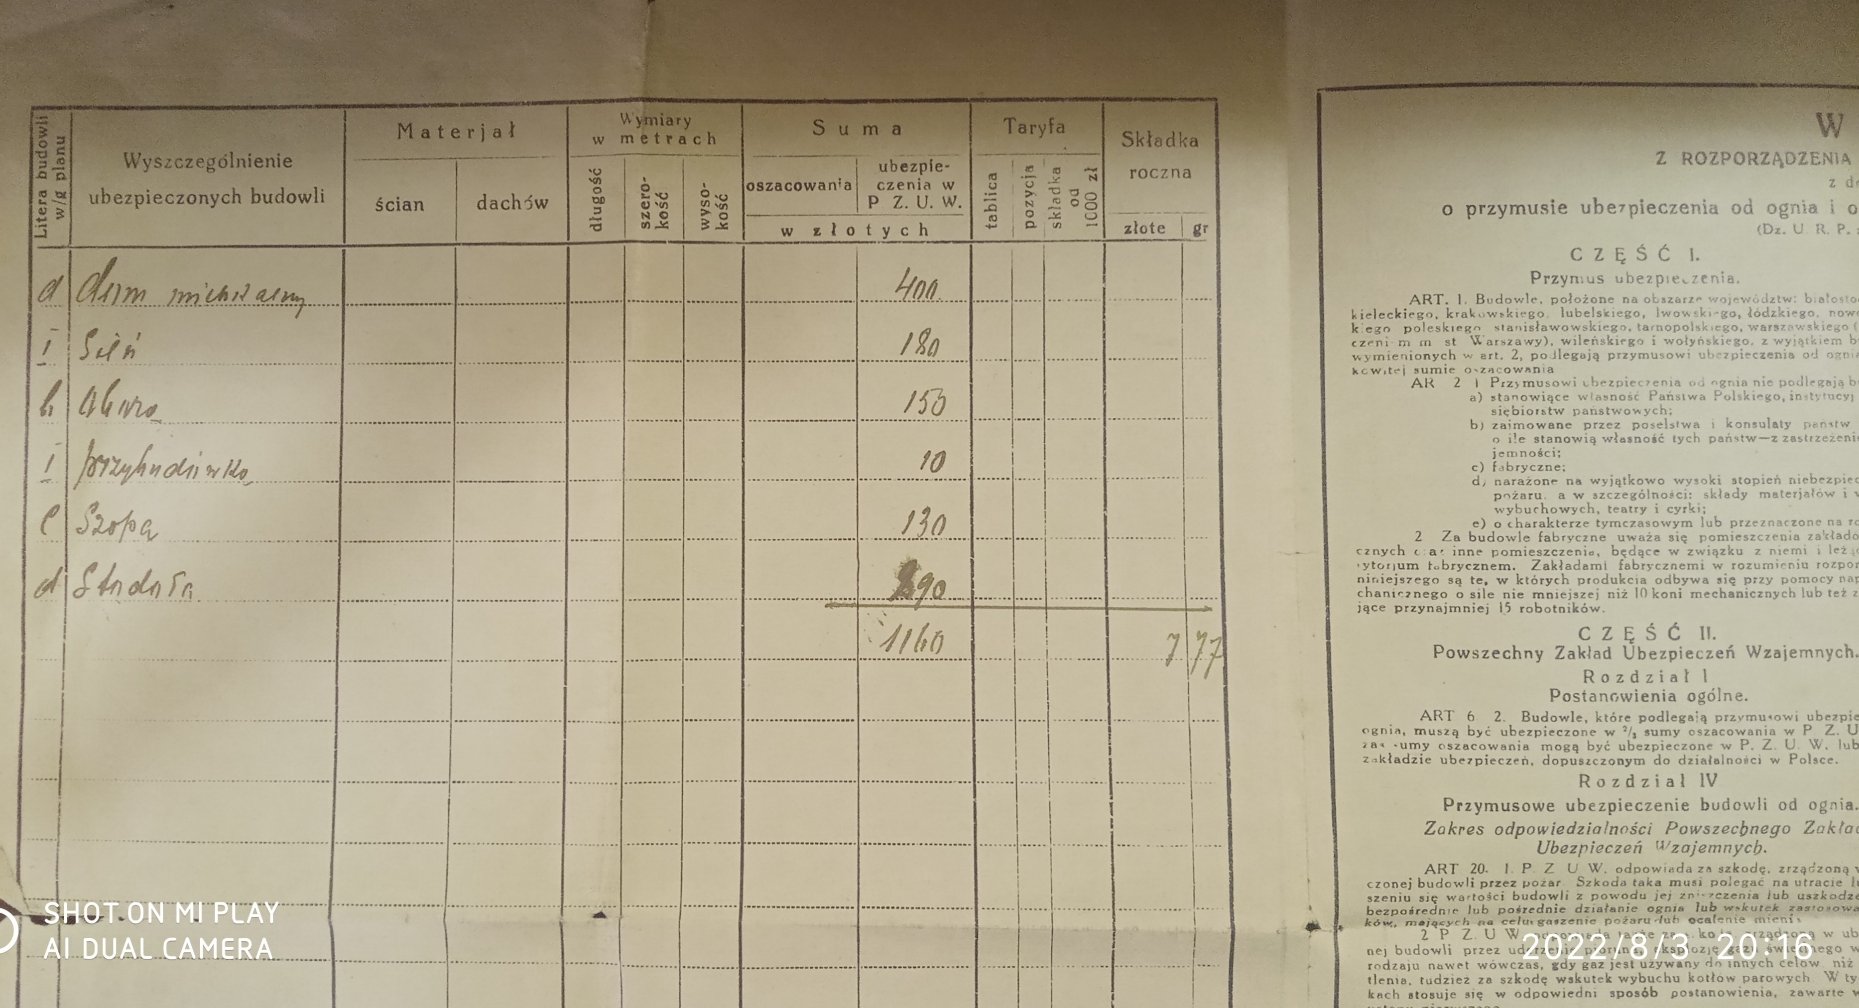 Litera budowli w/g planu
Wyszczególnienie ubezpieczonych budowli
Materjał
ścian
dachów
Wymiary
w metrach
długość
szero-
kość
wyso-
kość
Suma
oszacowania
ubezpie-
czenia w
P. Z. U. W.
w złotych
Taryfa
tablica
pozycja
składka od 1000 zł
Składka
roczna
złote
gr
d dom mieszkalny 400
i Sień 180
b Obora 150
i przybudówka 10
c Szopa 130
d Stodoła 290
1160 7 77
W
Z ROZPORZĄDZENIA
o przymusie ubezpieczenia od ognia i o
(Dz. U. R. P.
CZĘŚĆ I.
Przymus ubezpieczenia.
ART. 1. Budowle, położone na obszarze województw: białosto
kieleckiego, krakowskiego, lubelskiego, lwowskiego, łódzkiego, nowo
kiego poleskiego stanisławowskiego, tarnopolskiego, warszawskiego (
czeni m m st Warszawy), wileńskiego i wołyńskiego, z wyjątkiem b
wymienionych w art. 2, podlegają przymusowi ubezpieczenia od ognia
kowitej sumie oszacowania
AR 2 1 Przymusowi ubezpieczenia od ognia nie podlegają b
a) stanowiące własność Państwa Polskiego, instytucyj
siębiorstw państwowych;
b) zajmowane przez poselstwa i konsulaty państw
o ile stanowią własność tych państw—z zastrzeżeni
jemności;
c) fabryczne;
d) narażone na wyjątkowo wysoki stopień niebezpiec
pożaru, a w szczególności: składy materjałów i w
wybuchowych, teatry i cyrki;
e) o charakterze tymczasowym lub przeznaczone na ro
2 Za budowle fabryczne uważa się pomieszczenia zakłado
cznych oraz inne pomieszczenia, będące w związku z niemi i leżą
ytorjum fabrycznem. Zakładami fabrycznemi w rozumieniu rozpor
niniejszego są te, w których produkcja odbywa się przy pomocy nap
chanicznego o sile nie mniejszej niż 10 koni mechanicznych lub też z
jące przynajmniej 15 robotników.
CZĘŚĆ II.
Powszechny Zakład Ubezpieczeń Wzajemnych.
Rozdział I
Postanowienia ogólne.
ART 6 2. Budowle, które podlegają przymusowi ubezpie
ognia, muszą być ubezpieczone w ²/₃ sumy oszacowania w P. Z. U
zaś sumy oszacowania mogą być ubezpieczone w P. Z. U. W. lub
zakładzie ubezpieczeń, dopuszczonym do działalności w Polsce.
Rozdział IV
Przymusowe ubezpieczenie budowli od ognia.
Zakres odpowiedzialności Powszechnego Zakła
Ubezpieczeń Wzajemnych.
ART 20. 1. P. Z. U. W. odpowiada za szkodę, zrządzoną
czonej budowli przez pożar. Szkoda taka musi polegać na utracie l
szeniu się wartości budowli z powodu jej zniszczenia lub uszkodze
bezpośrednie lub pośrednie działanie ognia lub wskutek zastosowa
ków, mających na celu gaszenie pożaru lub ocalenie mieni
2 P Z. U W. odpowiada także za szkodę zrządzoną w ub
nej budowli przez uderzenie pioruna, eksplozję gazu świetlnego w
rodzaju nawet wówczas, gdy gaz jest używany do innych celów, niż
tlenia, tudzież za szkodę wskutek wybuchu kotłów parowych. W ty
kach stosuje się w odpowiedni sposób postanowienia, zawarte w
SHOT ON MI PLAY
AI DUAL CAMERA
2022/8/3 20:16